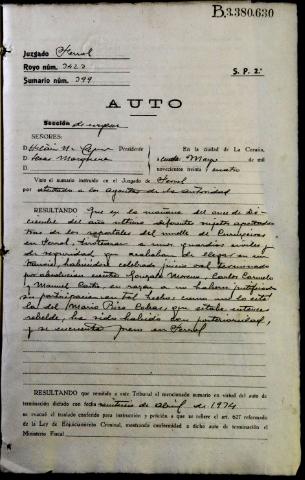 B,3.380.630
Juzgado Ferrol
Royo núm. 3423
Sumario núm. 399
S. P. 2.ª
AUTO
Sección de
SEÑORES:
D. Presidente En la ciudad de La Coruña,
D. Mosquera Mayo de mil
novecientos treinta
Visto el sumario instruido en el Juzgado de Ferrol
por atentado a los Agentes de la autoridad
RESULTANDO Que en la mañana del once de Di-
ciembre del año último diferentes sujetos aposta-
tras de los soportales del muelle de
en Ferrol, a unos guardias civiles y
de seguridad que acababan de llegar en un
habiéndose celebrado juicio oral terminado
por absolución contra Gonzalo Carlos
y Manuel en razón a no haberse justificado
su participación en tal hecho; como no lo está
la del Mario Pita que estaba entonces
rebelde, ha sido habido con posterioridad,
y se encuentra preso en Ferrol
RESULTANDO que remitido a este Tribunal el mencionado sumario en virtud del auto de
terminación dictado con fecha de Abril de
se evacuó el traslado conferido para instrucción y petición a que se refiere el art. 627 reformado
de la Ley de Enjuiciamiento Criminal, mostrando conformidad a dicho auto de terminación el
Ministerio Fiscal